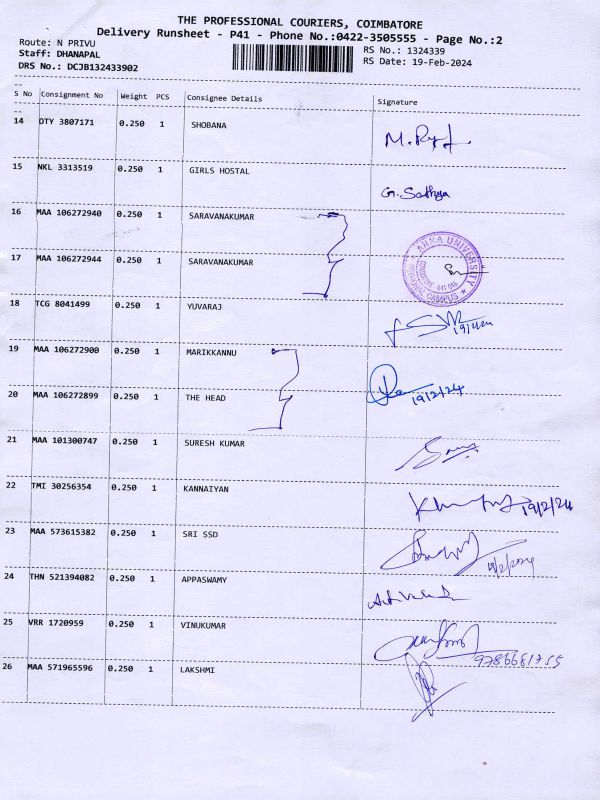 THE PROFESSIONAL COURIERS, COIMBATORE
Delivery Runsheet - P41 - Phone No.:0422-3505555 - Page No.:2
Route: N PRIVU
RS No.: 1324339
Staff: DHANAPAL
RS Date: 19-Feb-2024
DRS No.: DCJB132433902
S No Consignment No Weight PCS Consignee Details Signature
14 OTY 3807171 0.250 1 SHOBANA
15 NKL 3313519 0.250 1 GIRLS HOSTAL G. Sathya
16 MAA 106272940 0.250 1 SARAVANAKUMAR
17 MAA 106272944 0.250 1 SARAVANAKUMAR
ANNA UNIVERSITY
REGIONAL CAMPUS
COIMBATORE - 641 046
18 TCG 8041499 0.250 1 YUVARAJ
19 MAA 106272900 0.250 1 MARIKKANNU
20 MAA 106272899 0.250 1 THE HEAD 19/2/24
21 MAA 101300747 0.250 1 SURESH KUMAR
22 TMI 30256354 0.250 1 KANNAIYAN 19/2/24
23 MAA 573615382 0.250 1 SRI SSD
24 THN 521394082 0.250 1 APPASWAMY
25 VRR 1720959 0.250 1 VINUKUMAR
26 MAA 571965596 0.250 1 LAKSHMI